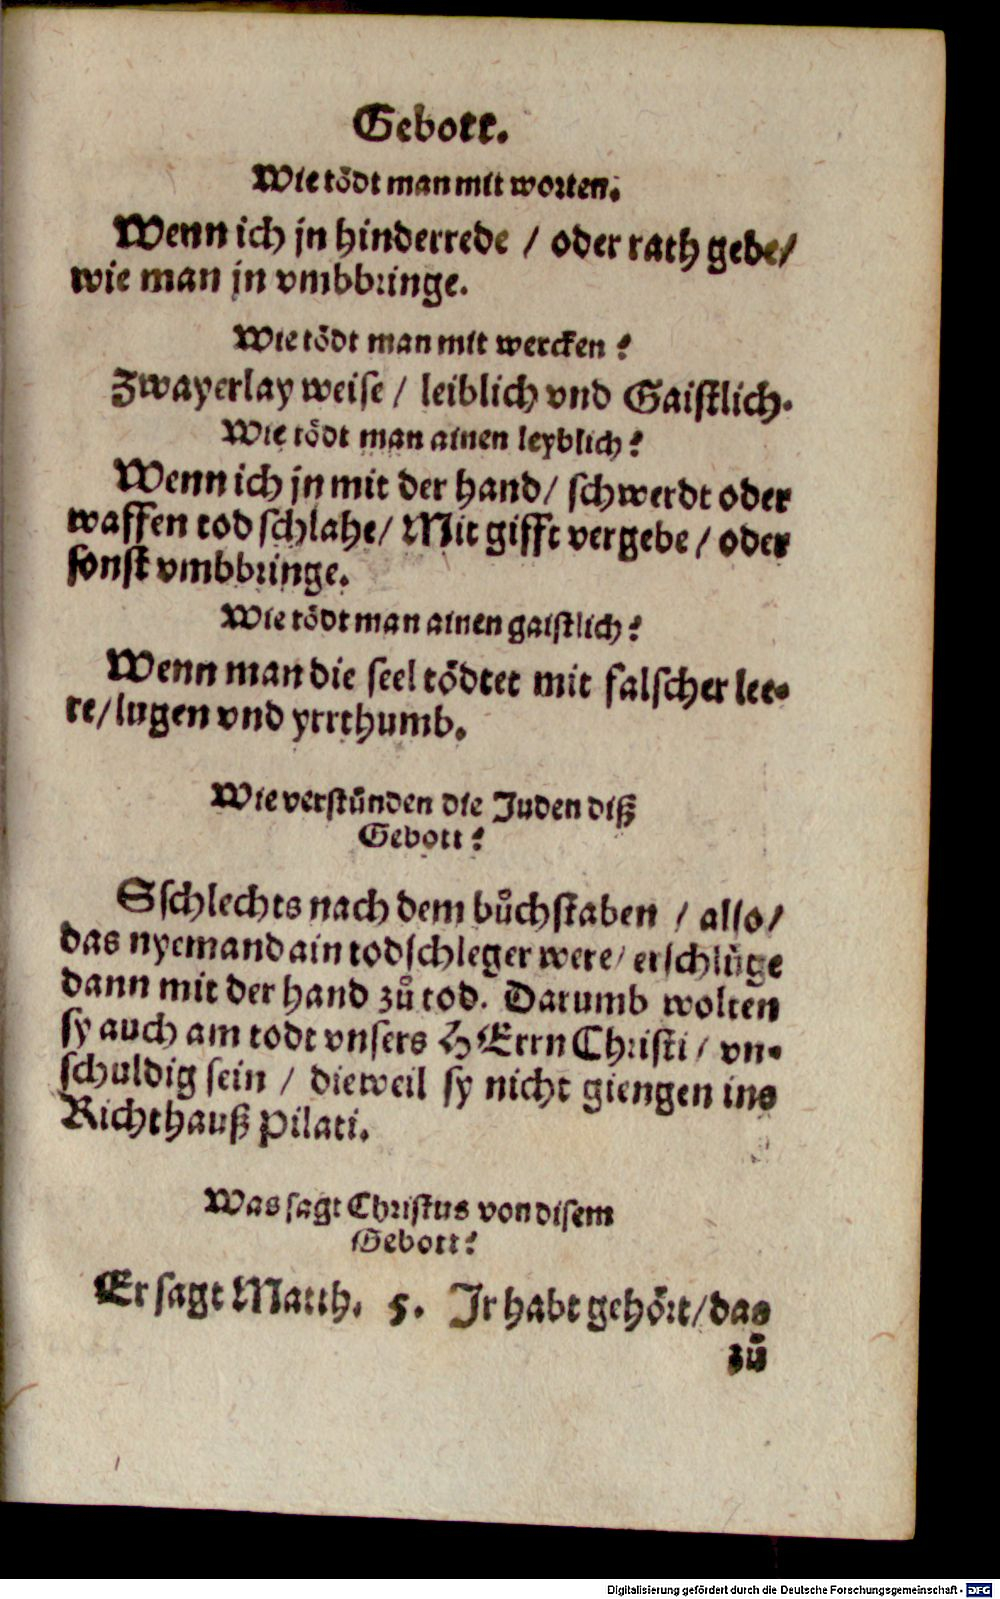 Gebott.
Wie tödt man mit worten.
Wenn ich jn hinderrede / oder rath gebe/
wie man jn vmbbringe.
Wie tödt man mit wercken?
Zwayerlay weise / leiblich vnd Gaistlich.
Wie tödt man ainen leyblich?
Wenn ich jn mit der hand/ schwerdt oder
waffen tod schlahe/ Mit gifft vergebe / oder
sonst vmbbringe.
Wie tödt man ainen gaistlich?
Wenn man die seel tödtet mit falscher lee-
re/lugen vnd yrrthumb.
Wie verstünden die Juden diß
Gebott?
Sschlechts nach dem bůchstaben / also/
das nyemand ain todschleger were/ erschlůge
dann mit der hand zů tod. Darumb wolten
sy auch am todt vnsers HErrn Christi / vn-
schuldig sein / dieweil sy nicht giengen ins
Richthauß Pilati.
Was sagt Christus von disem
Gebott?
Er sagt Matth. 5. Jr habt gehört/das
zů
Digitalisierung gefördert durch die Deutsche Forschungsgemeinschaft - DFG